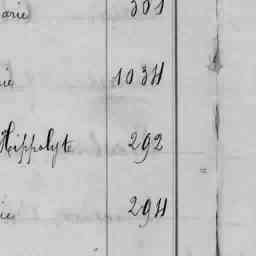 arie 301
ie 1034
Hippolyte 292
ie 294